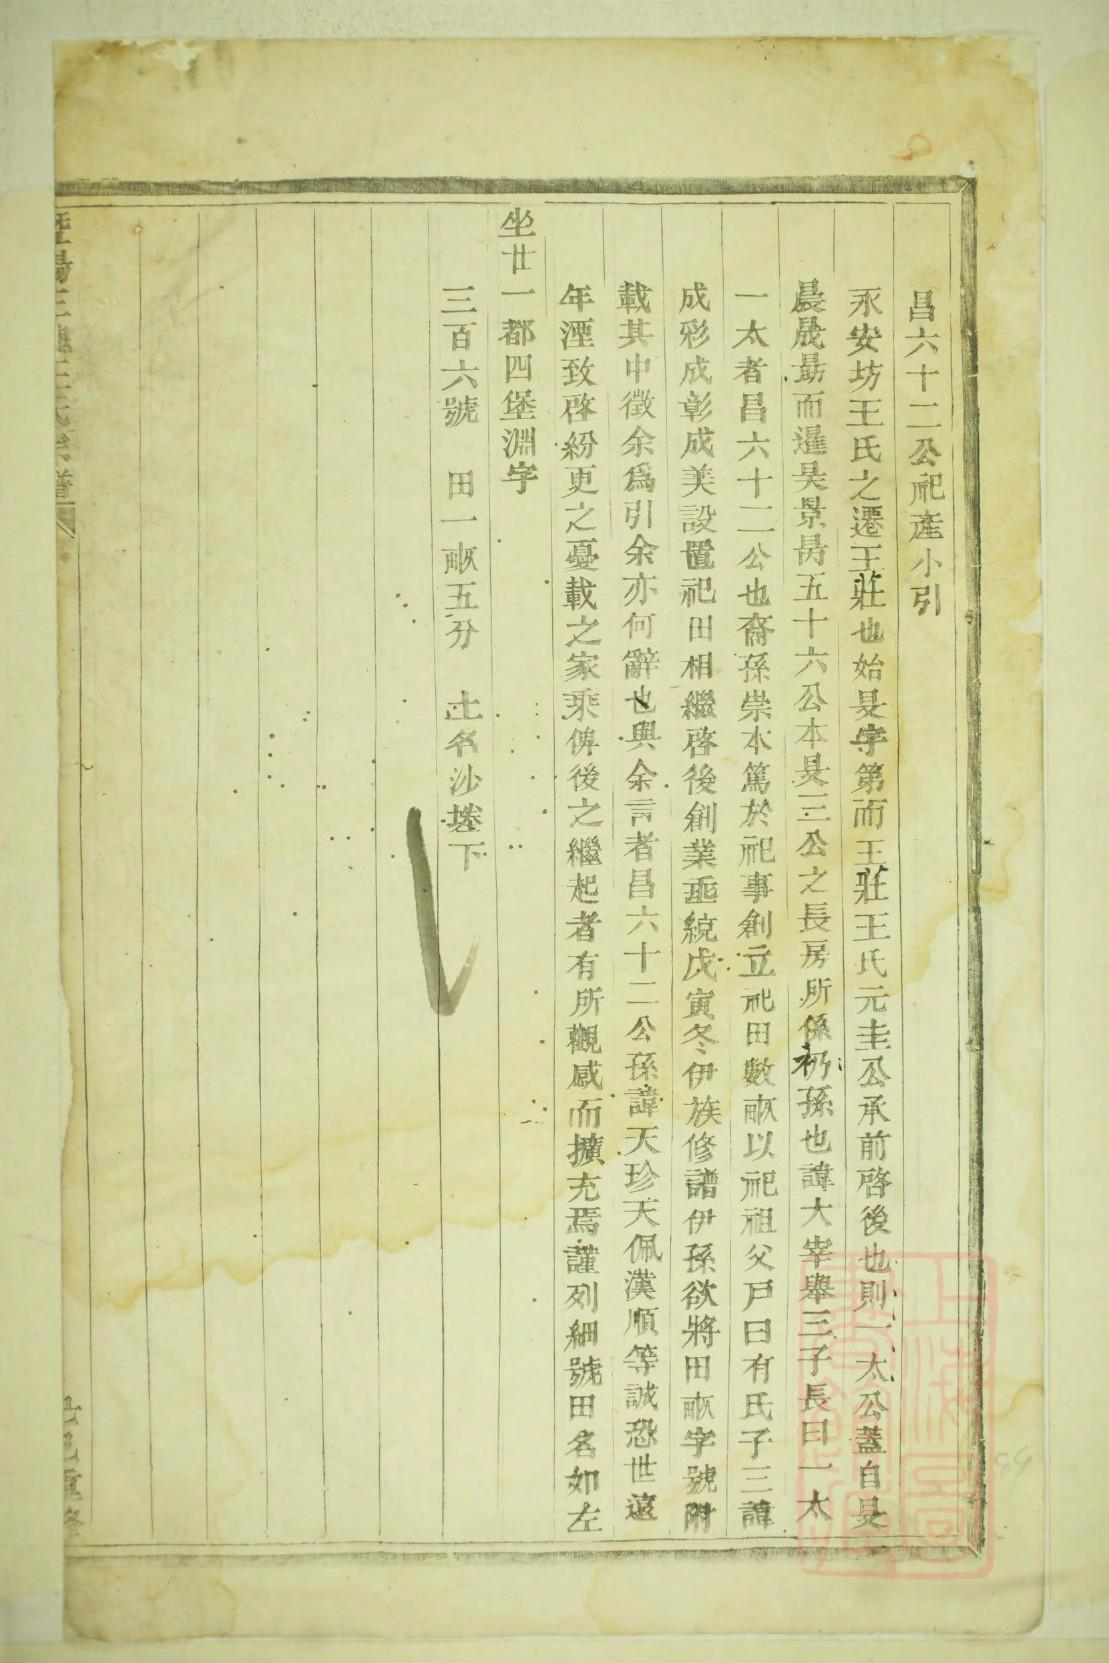 昌六十二公祀產小引
永安坊王氏之遷王莊也始旻字第而王莊王氏元圭公承前啓後也則一太公蓋自旻
晨晟勗而暹昊景昺五十六公本旻三公之長房所係礽孫也諱大宰舉三子長曰一太
一太者昌六十二公也裔孫崇本篤於祀事創立祀田數畝以祀祖父戸曰有氏子三諱
成彩成彰成美設置祀田相繼啓後創業垂統戊寅冬伊族修譜伊孫欲將田畝字號附
載其中徵余爲引余亦何辭也與余言者昌六十二公孫諱天珍天佩漢順等誠恐世遠
年湮致啓紛更之憂載之家乘俾後之繼起者有所觀感而擴充焉謹列細號田名如左
坐廿一都四堡淵字
三百六號 田一畝五分 土名沙塂下
暨陽 王氏宗譜
己重修
上海圖書館藏